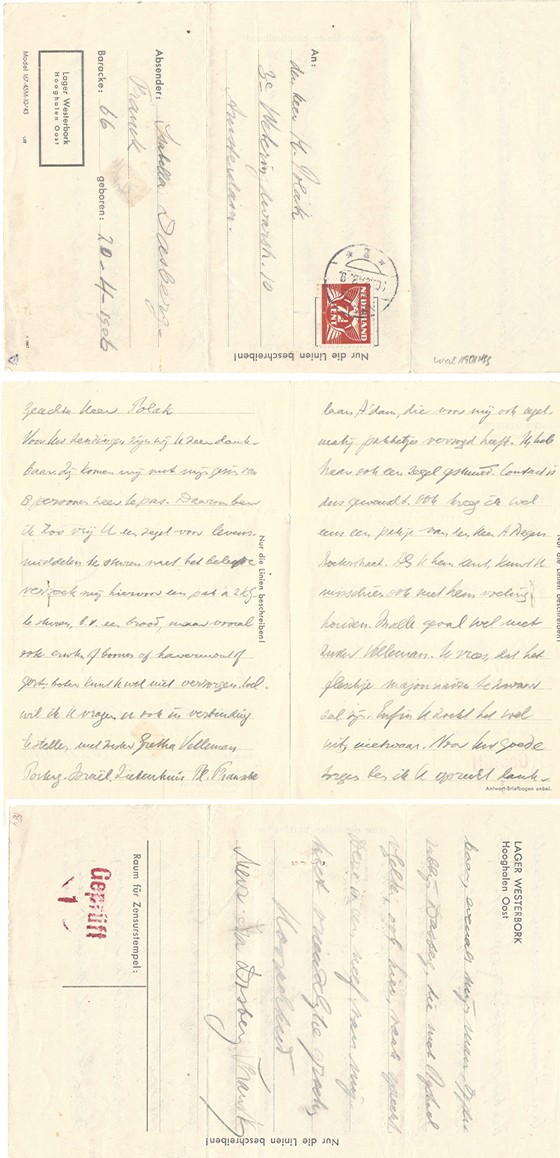 Lager Westerbork
Hooghalen Oost
Model 107-45M-10-'43
Absender: Isabella Dasberg-
Franck
Baracke: 66 geboren: 20-4-1906
An:
den heer H. Polak
3e Weteringdwarsstr. 10
Amsterdam.
NEDERLAND
7½
CENT
Nur die Linien beschreiben!
Geachte Heer Polak
Voor Uw zendingen zijn wij U zeer dank-
baar. Zij komen mij met mijn gezin van
8 personen zeer te pas. Daarom ben
ik zoo vrij U een zegel voor levens-
middelen te sturen met het beleefde
verzoek mij hiervoor een pak à 2 kg
te sturen, b.v. een brood, maar vooral
ook erwten of boonen of havermout of
gort. boter kunt U wel niet verzorgen. Wel
wil ik U vragen U ook in verbinding
te stellen met zuster Gretha Velleman
Portug. Israël. Ziekenhuis Pl. Franske
Nur die Linien beschreiben!
laan, A'dam, die voor mij ook regel-
matig pakketjes verzorgd heeft. Ik heb
haar ook een zegel gestuurd. Contact is
dus gewenscht. Ook kreeg ik wel
eens een pakje van den Heer A
Als U hem kent, kunt U
misschien ook met hem voeling
houden. In elk geval wel met
zuster Velleman. Ik vrees, dat het
fleschje mayonnaise te zwaar
zal zijn. Enfin U zoekt het wel
uit, nietwaar. Voor Uw goede
zorgen ben ik U oprecht dank-
Nur die Linien beschreiben!
Antwort-Briefbogen anbei.
LAGER WESTERBORK
Hooghalen Oost
baar, evenals mijn man,
rabb. Dasberg, die met
ook hier, vaak
een neef van mij
Met vriendelijke groeten
Hoogachtend
Mevr. Isa Dasberg-Franck
Raum für Zensurstempel:
Geprüft
1
Nur die Linien beschreiben!